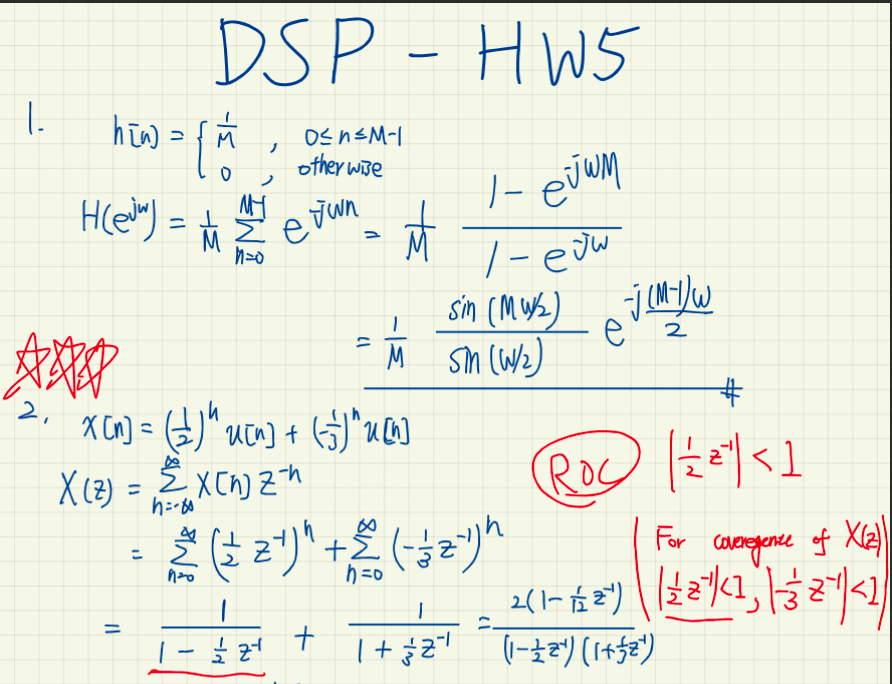 DSP - HW5
1.
h[n] = { 1/M , 0≤n≤M-1
0 , otherwise
H(e^jw) = 1/M Σ_{n=0}^{M-1} e^-jwn = 1/M (1 - e^-jwM)/(1 - e^-jw)
= 1/M sin(Mw/2)/sin(w/2) e^-j(M-1)w/2 #
2.
x[n] = (1/2)^n u[n] + (-1/3)^n u[n]
X(z) = Σ_{n=-∞}^{∞} x[n] z^-n
= Σ_{n=0}^{∞} (1/2 z^-1)^n + Σ_{n=0}^{∞} (-1/3 z^-1)^n
= 1/(1 - 1/2 z^-1) + 1/(1 + 1/3 z^-1) = 2(1 - 1/12 z^-1)/((1 - 1/2 z^-1)(1 + 1/3 z^-1))
ROC |1/2 z^-1| < 1
( For coveregence of X(z)
|1/2 z^-1|<1, |-1/3 z^-1|<1 )